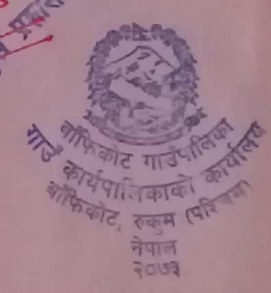 बाँफिकोट गाउँपालिका
गाउँ कार्यपालिकाको कार्यालय
बाँफिकोट, रुकुम (पश्चिम)
नेपाल
२०७३